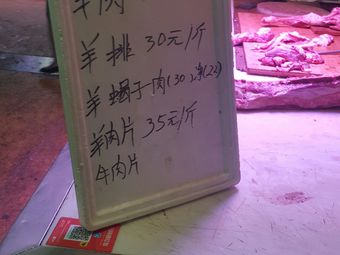 羊肉
羊排 30元/斤
羊蝎子肉(30)净(22)
羊肉片 35元/斤
牛肉片